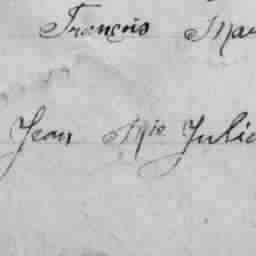 François Mar
Jean Mie Julie